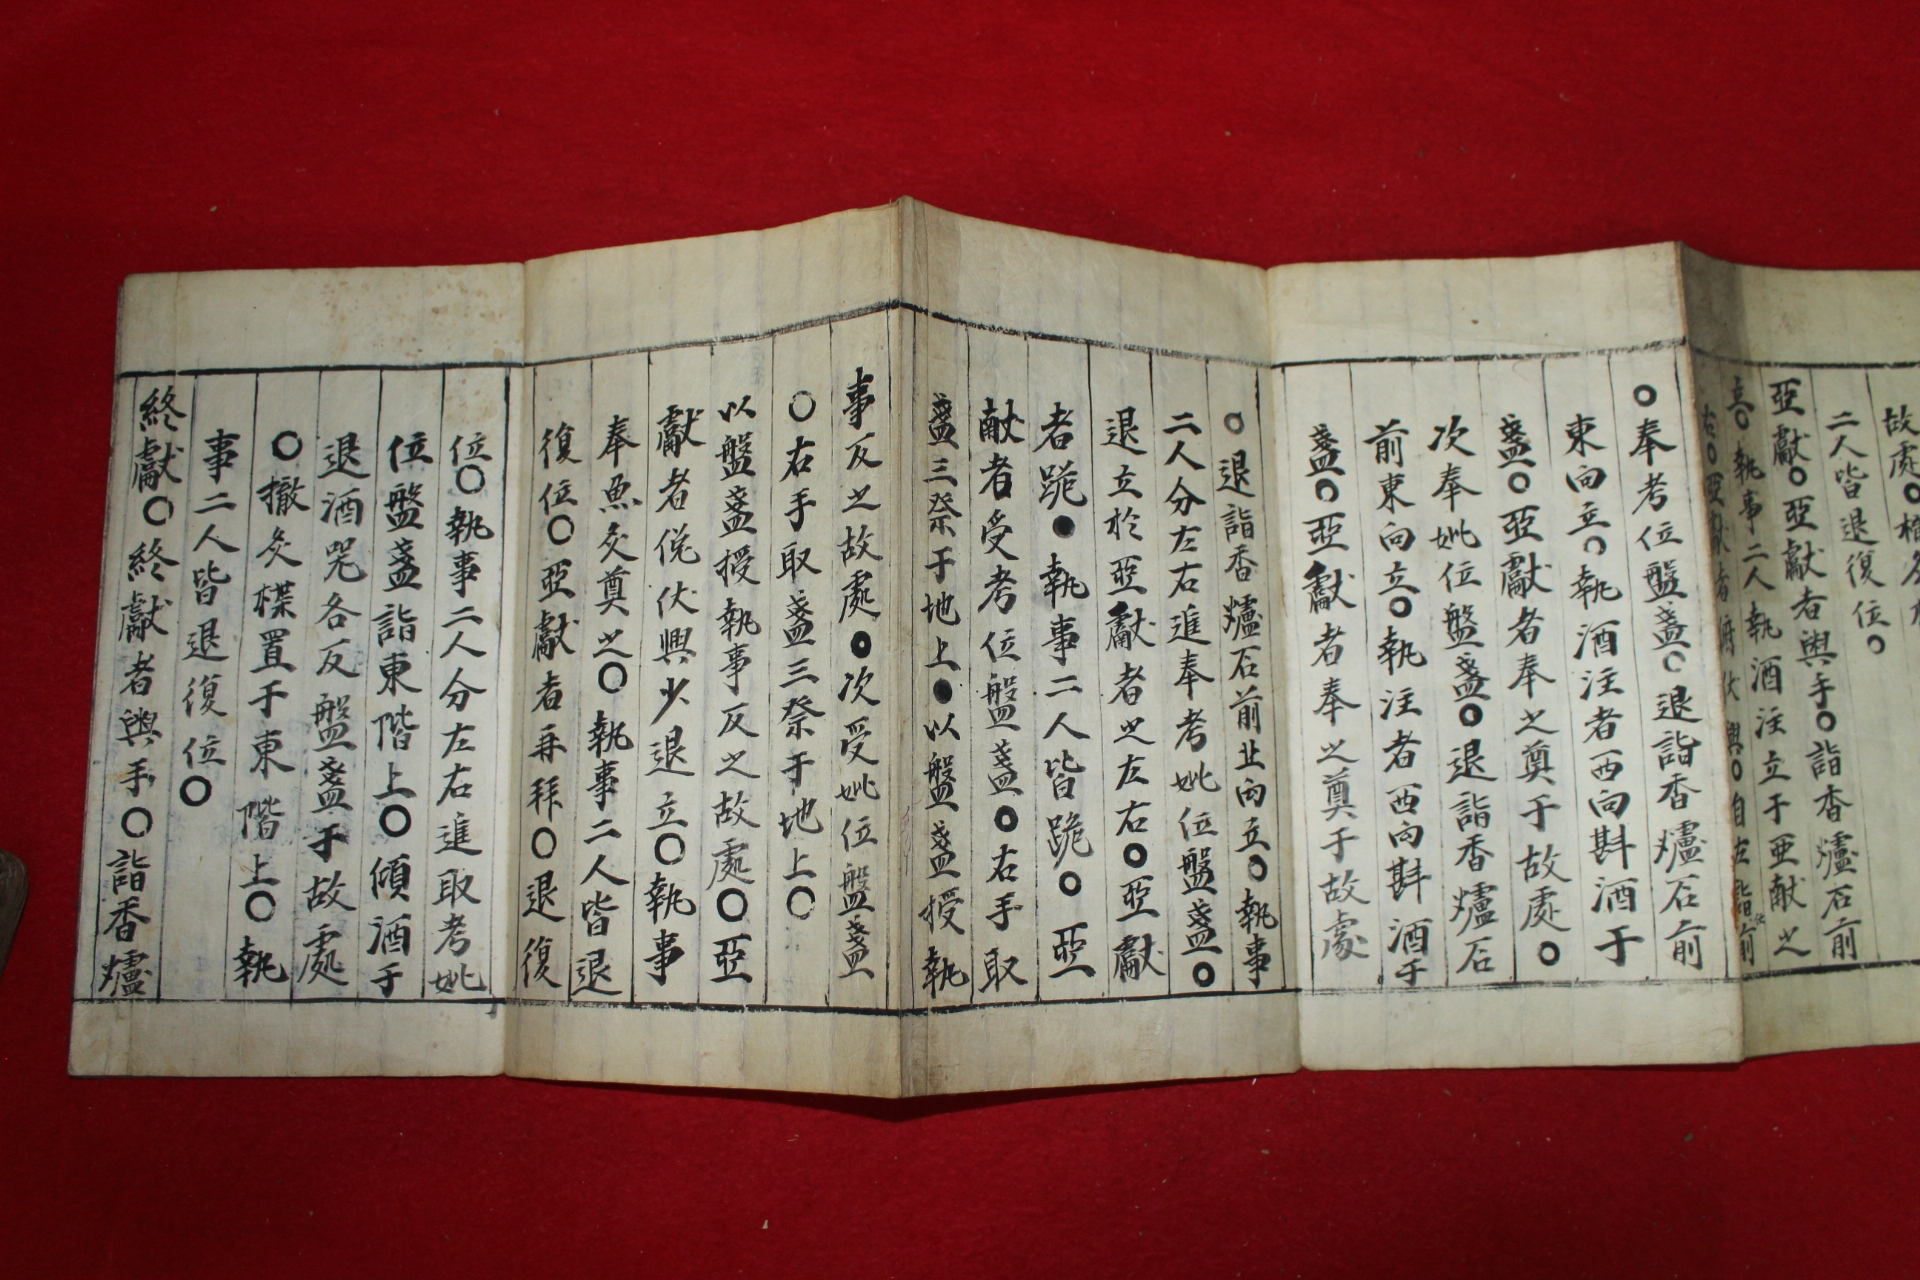 故處○
二人皆退復位○
亞獻○亞獻者與手○詣香爐石前
○執事二人執酒注立于亜献之
○奉考位盤盞○退詣香爐石前
東向立○執酒注者西向斟酒于
盞○亞獻者奉之奠于故處○
次奉妣位盤盞○退詣香爐石
前東向立○執注者西向斟酒于
盞○亞獻者奉之奠于故處
○退詣香爐石前北向立○執事
二人分左右進奉考妣位盤盞○
退立於亞獻者之左右○亞獻
者跪●執事二人皆跪○亞
献者受考位盤盞○右手取
盞三祭于地上●以盤盞授執
事反之故處○次受妣位盤盞
○右手取盞三祭于地上○
以盤盞授執事反之故處○亞
獻者俛伏興少退立○執事
奉魚炙奠之○執事二人皆退
復位○亞獻者再拜○退復
位○執事二人分左右進取考妣
位盤盞詣東階上○傾酒于
退酒咒各反盤盞于故處
○撤炙楪置于東階上○執
事二人皆退復位○
終獻○終獻者與手○詣香爐